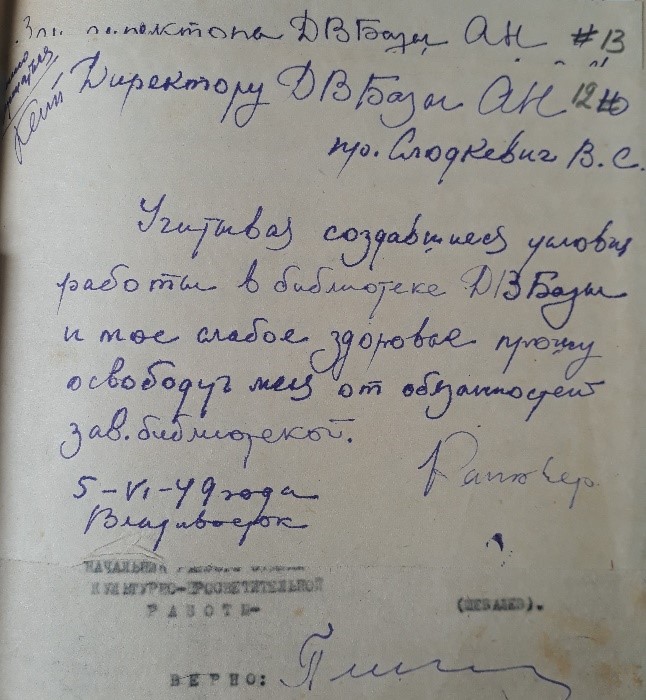 ДВ Базы АН #13
Директору ДВ Базы АН 12
пр. Слодкевич В.С.
Учитывая создавшиеся условия
работы в библиотеке ДВ Базы
и мое слабое здоровье прошу
освободить меня от обязанностей
зав. библиотекой.
5-VI-49 года
Владивосток
НАЧАЛЬНИК
КУЛЬТУРНО-ПРОСВЕТИТЕЛЬНОЙ
РАБОТЫ-
(ШЕВАЛЕВ).
ВЕРНО: